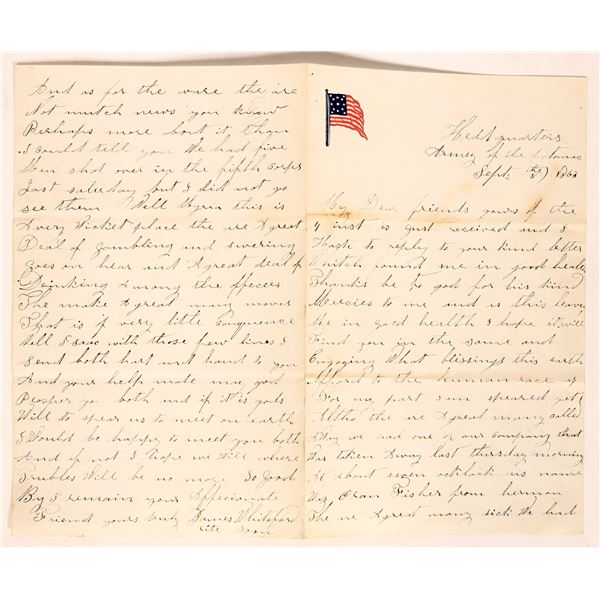 Hedfquarters
Armey of the potomac
Sept. the 5) 1863
My Dear friends yours of the
4 inst is gust received and I
Hash to reply to your kind letter
Whitch found me in good health
Thanks be to god for his kind
Mercies to me and is this leaves
Me in good health I hope it will
Find you in the same and
Engoying What blessings this earth
Afford to the human race as
For my part I am speared yet
Altho the are A great many called
Away we had one of our Company that
Was taken Away last thursday morning
At About seven ocklock his name
Was Oran Fisher from hermon
The are A great many sick We had
And as for the ware the are
Not mutch news you know
Perhaps more bout it than
I could tell you We had five
Men shot over in the fifth Corps
Last saterday but I did not go
see them Well this is
A very Wicket place the are A great
Deal of gambling and swering
Goes on hear and A great deil of
Drinking Among the offecers
The make A great many moves
That is if very little
Well I with those few lines I
Send both hart and hand to you
And your help mate may god
Prosper you both and if it is gods
Will to spear us to meet on earth
I Would be happy to meet you both
And if not I hope we Will where
Trubles Will be no more So Good
By I remain your Affecionate
Friend yours truly James Whiteford
rite soon